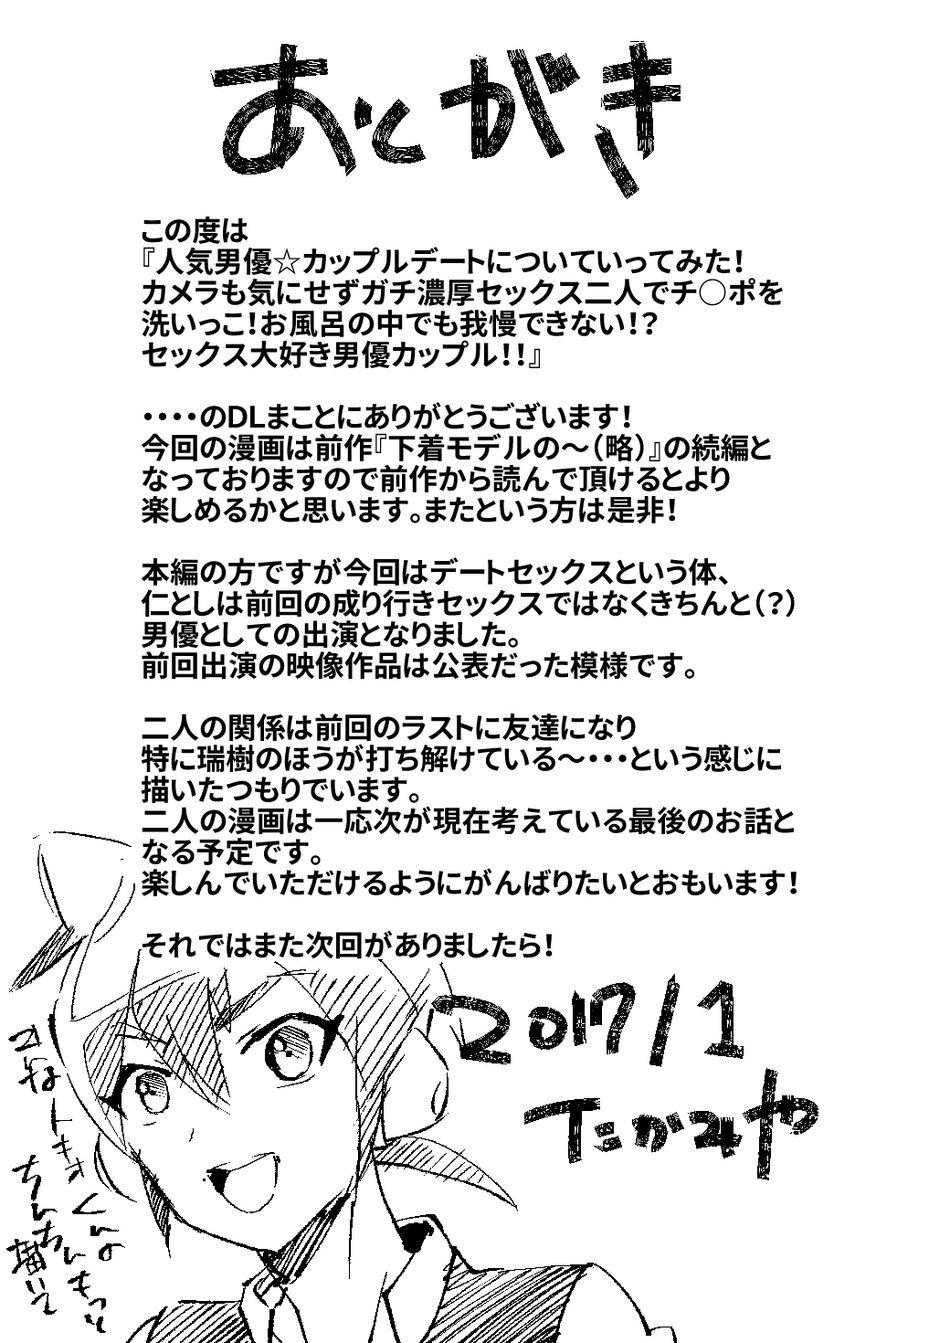 あとがき
この度は
『人気男優☆カップルデートについていってみた！
カメラも気にせずガチ濃厚セックス二人でチ○ポを
洗いっこ！お風呂の中でも我慢できない！？
セックス大好き男優カップル！！』
・・・・のDLまことにありがとうございます！
今回の漫画は前作『下着モデルの～（略）』の続編と
なっておりますので前作から読んで頂けるとより
楽しめるかと思います。またという方は是非！
本編の方ですが今回はデートセックスという体、
仁としは前回の成り行きセックスではなくきちんと（？）
男優としての出演となりました。
前回出演の映像作品は公表だった模様です。
二人の関係は前回のラストに友達になり
特に瑞樹のほうが打ち解けている～・・・という感じに
描いたつもりでいます。
二人の漫画は一応次が現在考えている最後のお話と
なる予定です。
楽しんでいただけるようにがんばりたいとおもいます！
それではまた次回がありましたら！
2017/1
たかみや
くんの
ちんちんもっと
描いて